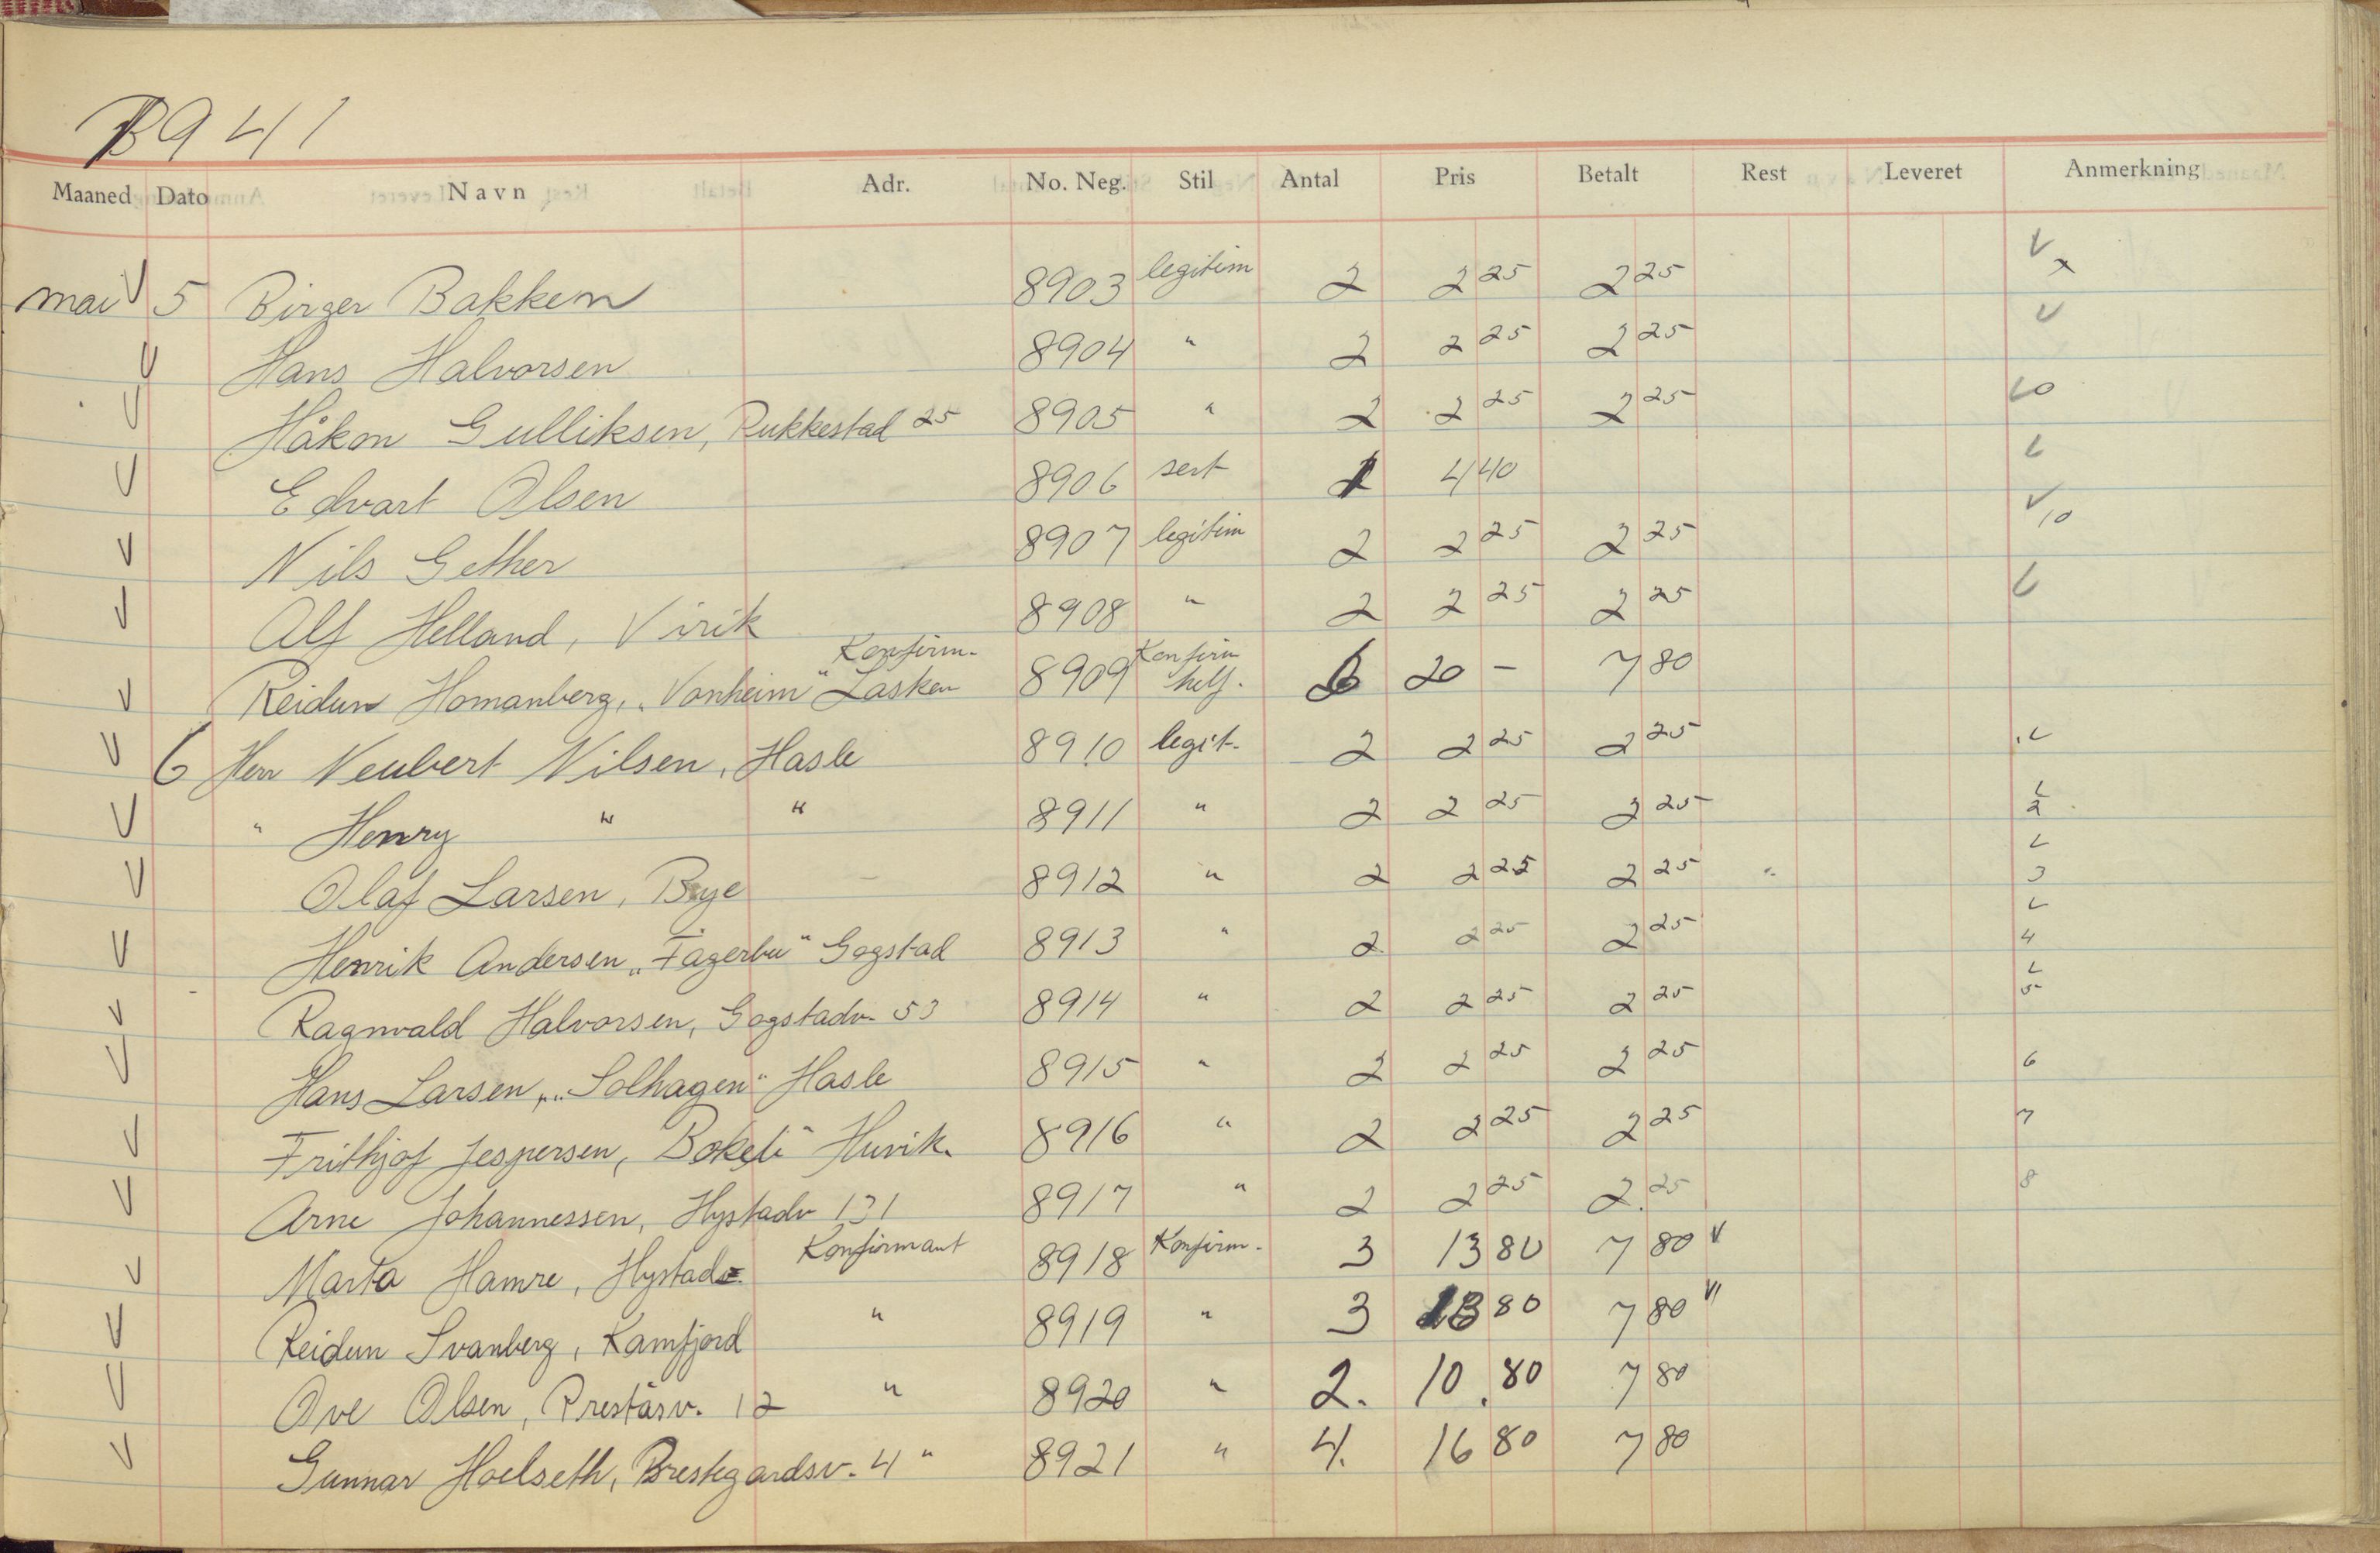 1941
Maaned Dato Navn Adr. No. Neg. Stil Antal Pris Betalt Rest Leveret Anmerkning
mai V 5 Birger Bakken 8903 legitim 2 2 25 2 25 V x
V Hans Halvorsen 8904 " 2 2 25 2 25 V
V Håkon Gulliksen, Rukkestad 25 8905 " 2 2 25 2 25
V Edvart Olsen 8906 sert 1 4 40
V Nils Gether 8907 legitim 2 2 25 2 25 V 10
V Alf Helland, Virik 8908 " 2 2 25 2 25 V
V Reidun Homanberg, „Vonheim" Lasken Konfirm. 8909 Konfirm helf. 6 20 – 7 80
V 6 Herr Neubert Nilsen, Hasle 8910 legit. 2 2 25 2 25 V
V " Henry " " 8911 " 2 2 25 2 25 V 2
V Olaf Larsen, Bye 8912 " 2 2 25 2 25 V 3
V Henrik Andersen „Fagerbu" Gogstad 8913 " 2 2 25 2 25 V 4
V Ragnvald Halvorsen, Gogstadv. 53 8914 " 2 2 25 2 25 V 5
V Hans Larsen, „Solhagen" Hasle 8915 " 2 2 25 2 25 6
V Frithjof Jespersen, Bokeli" Huvik. 8916 " 2 2 25 2 25 7
V Arne Johannessen, Hystadv 131 8917 " 2 2 25 2. 25 8
V Marta Hamre, Hystadv. Konfirmant 8918 Konfirm. 3 13 80 7 80 V
V Reidun Svanberg, Kamfjord " 8919 " 3 13 80 7 80 V
V Ove Olsen, Preståsv. 12 " 8920 " 2. 10.80 7 80
V Gunnar Hoelseth, Prestegardsv. 4 " 8921 " 4. 16 80 7 80